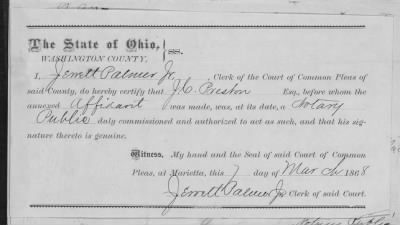 The State of Ohio,
WASHINGTON COUNTY. } ss.
I, Jerrett Palmer Jr. Clerk of the Court of Common Pleas of
said County, do hereby certify that J.C. Preston Esq., before whom the
annexed Affidavit was made, was, at its date, a Notary
Public duly commissioned and authorized to act as such, and that his sig-
nature thereto is genuine.
Witness, My hand and the Seal of said Court of Common
Pleas, at Marietta, this 7 day of March 1868
Jerrett Palmer Jr. Clerk of said Court.
Notary Public